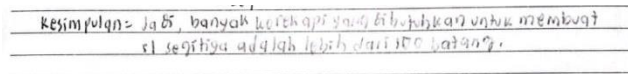 Kesimpulan = Jadi, banyak korek api yang dibutuhkan untuk membuat
51 segitiga adalah lebih dari 100 batang.